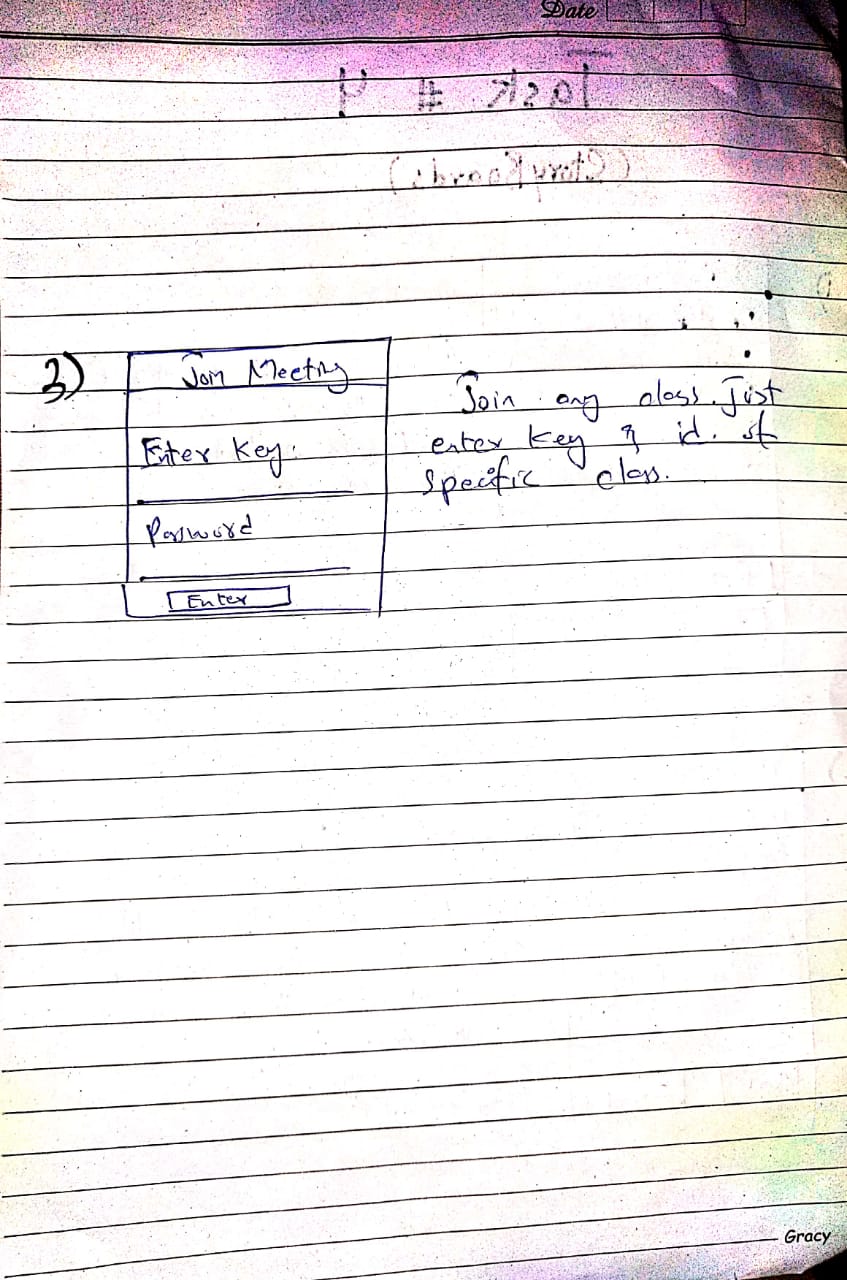 Date
Task # 4
(Story Boards)
3)
Join Meeting
Enter Key:
Password
Enter
Join any class. Just
enter key & id. of
specific class.
Gracy